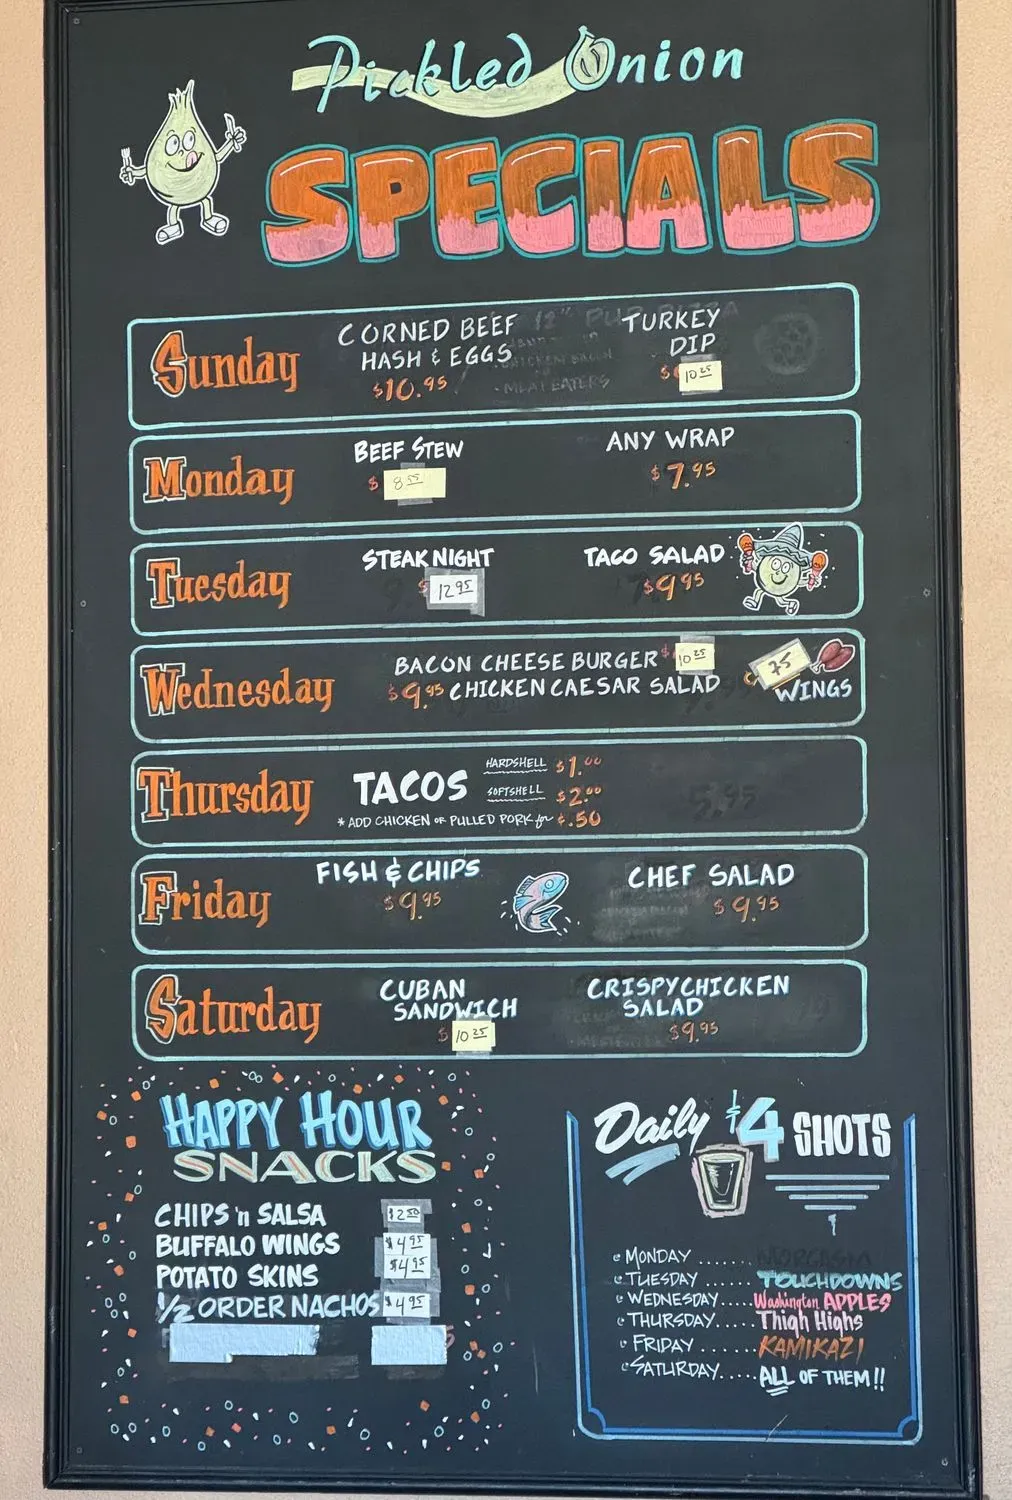 Pickled Onion
SPECIALS
Sunday
CORNED BEEF
HASH & EGGS
$10.95
TURKEY
DIP
$ 10.25
Monday
BEEF STEW
$
ANY WRAP
$7.95
Tuesday
STEAK NIGHT
$ 12.95
TACO SALAD
$9.95
Wednesday
BACON CHEESE BURGER $ 10.25
$9.95 CHICKEN CAESAR SALAD
75
WINGS
Thursday
TACOS
HARDSHELL $1.00
SOFTSHELL $2.00
* ADD CHICKEN or PULLED PORK for $.50
Friday
FISH & CHIPS
$9.95
CHEF SALAD
$9.95
Saturday
CUBAN
SANDWICH
$ 10.25
CRISPY CHICKEN
SALAD
$9.95
HAPPY HOUR
SNACKS
CHIPS 'n SALSA $2.50
BUFFALO WINGS $4.95
POTATO SKINS $4.95
1/2 ORDER NACHOS $4.95
Daily $4 SHOTS
MONDAY .......
TUESDAY ...... TOUCHDOWNS
WEDNESDAY..... Washington APPLES
THURSDAY...... Thigh Highs
FRIDAY ....... KAMIKAZI
SATURDAY..... ALL OF THEM!!